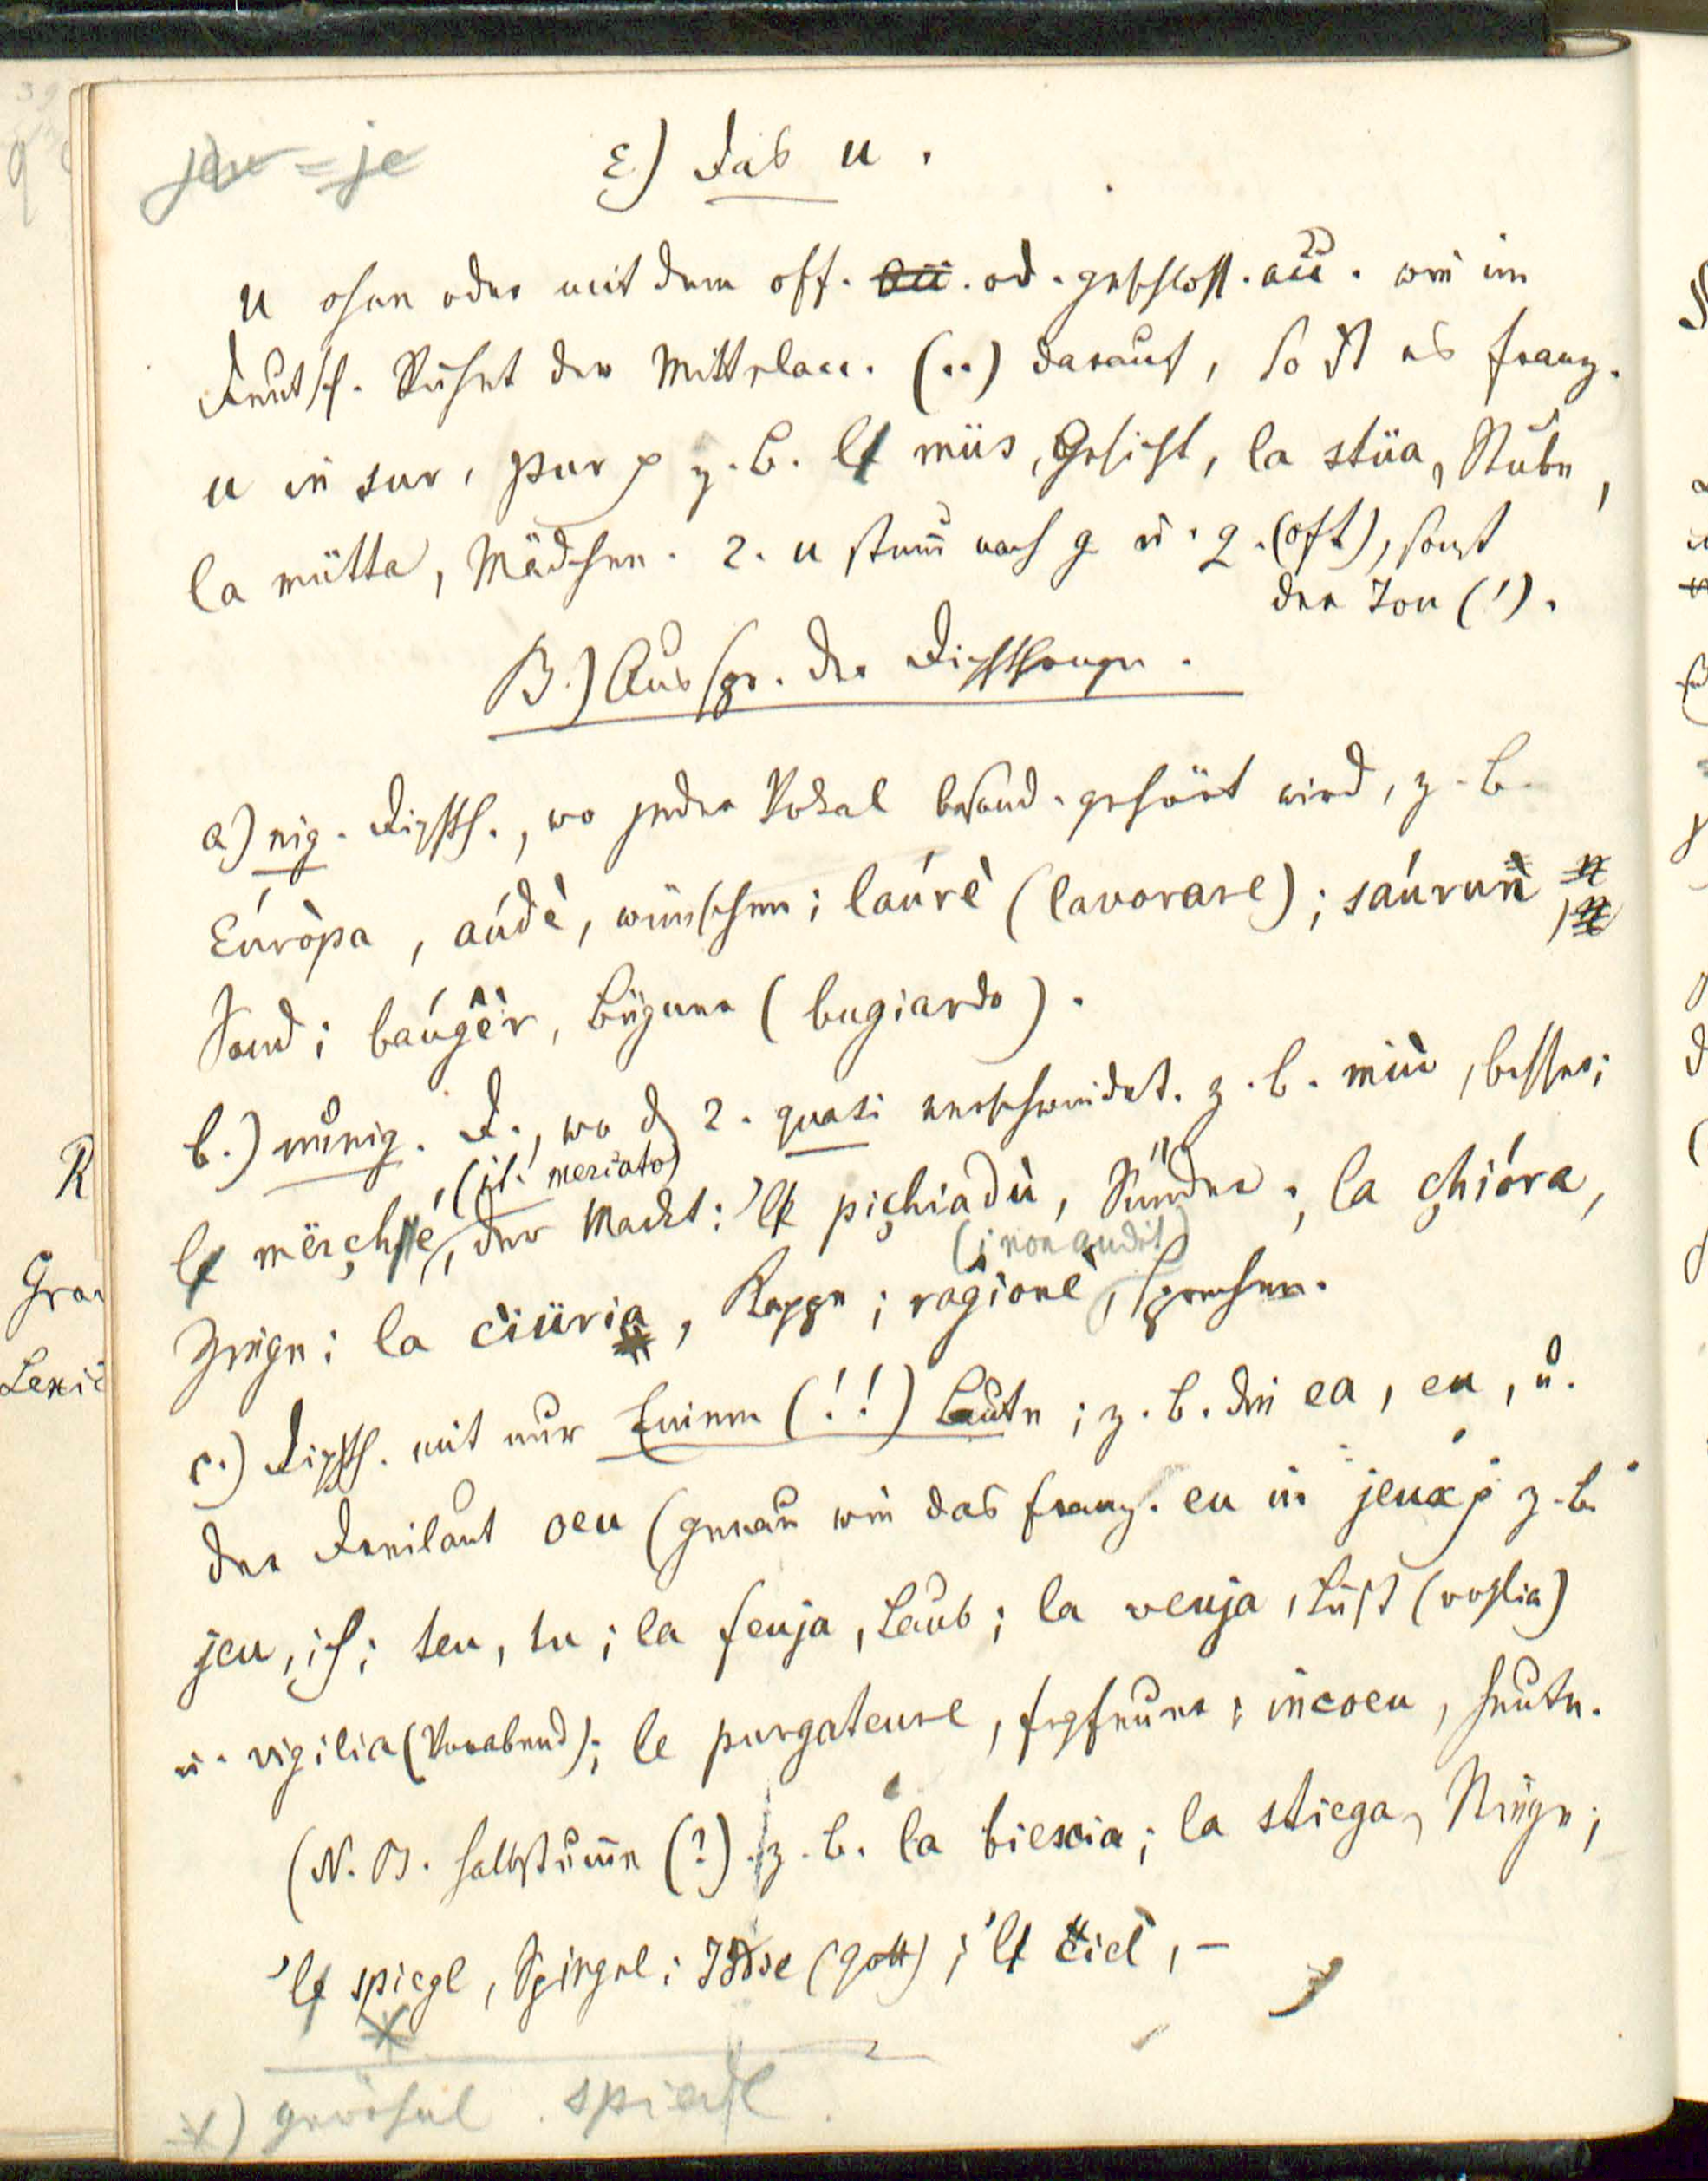 jeu = je
ε) Das u.
u ohne oder mit dem off. od. geschloss. acc. wie im
Deutsch. Ruhet der Mittelacc. (..) darauf, so ist es franz.
u in sur, pur p z. B. le müs, Gesicht, la stüa, Stube,
la mütta, Mädchen. 2. u stum̄ nach g u. q. (oft), sonst
der Ton (').
B.) Ausspr. der Diphthonge.
a) eig. Diphth., wo jeder Vokal besond. gehört wird, z. B.
Eúròpa, aúdè, wünschen; laúrè (lavorare); saúrun
Sand; baúgêr, Lügner (bugiardo).
b.) uneig. D., wo d 2. quasi verschwindet. z. B. miù, besser;
(it. mercato)
le mërchié, der Markt; 'le pichiadù, Sünder; la chióra,
(i non audit)
Ziege; la ciüria, Kappe; ragionè, sprechen.
c.) Diphth. mit nur Einem (!!) Laute; z. B. die ea, eu, u.
der Dreilaut oeu (genau wie das franz. eu in jeux p z. B.
jeu, ich; teu, tu; la feuja, Laub; la veuja, Lust (voglia)
u. vigilia (Vorabend); le purgateure, Fegfeuer; incoeu, heute.
(N. B. halbstum̄e (?) z. B. la biescia; la stiega, Stiege;
'le spiegl, Spiegel; Iddie (Gott); 'le ciel, -
*) gewöhnl. spiedl